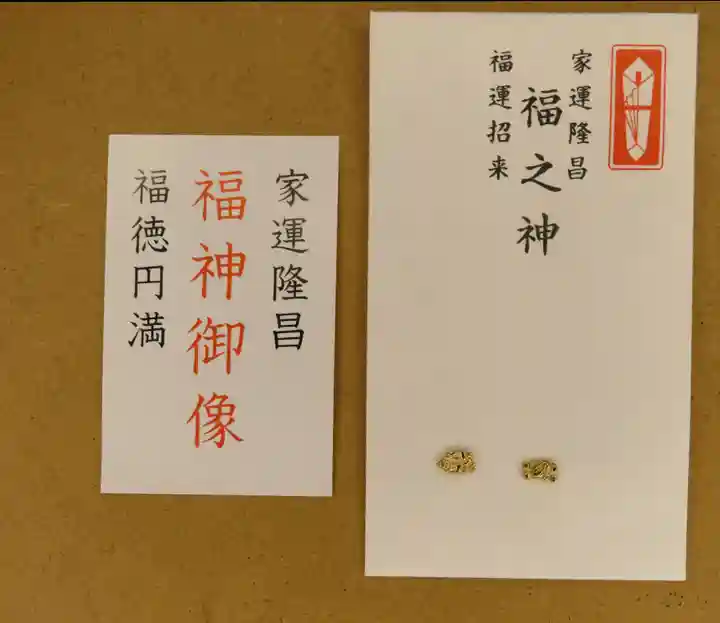 家運隆昌
福之神
福運招来
家運隆昌
福神御像
福徳円満